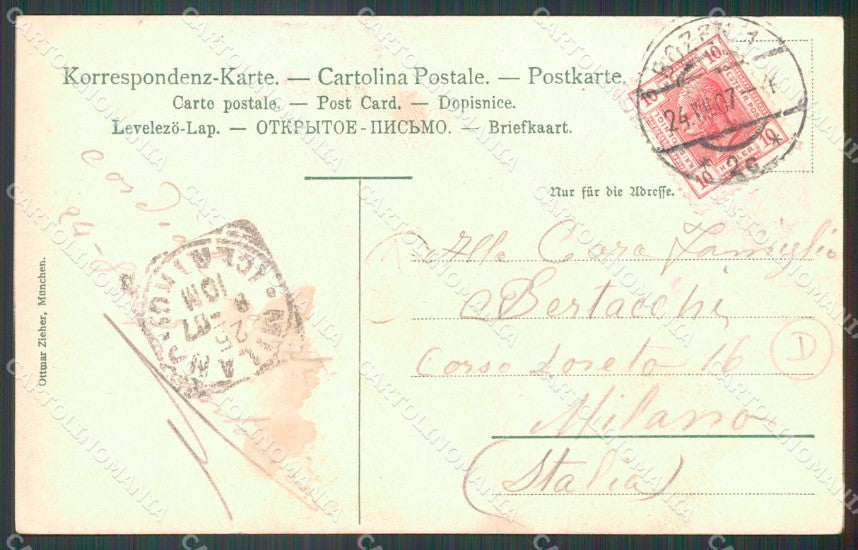 Korrespondenz-Karte. — Cartolina Postale. — Postkarte.
Carte postale. — Post Card. — Dopisnice.
Levelezö-Lap. — ОТКРЫТОЕ-ПИСЬМО. — Briefkaart.
BOZEN 1
24.VII.07
* 2c *
10
10
10
10
Nur für die Adresse.
Alla Cara Famiglia
Bertacchi
Corso Loreto 16
D
Milano
(Italia)
MILANO
25
07
10M
Ottmar Zieher, München.
CARTOLINOMANIA